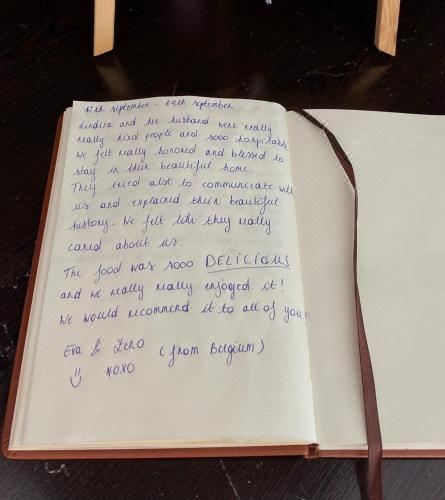 september - september
and her husband were really
really kind people and sooo hospitable
We felt really honored and blessed to
stay in their beautiful home.
They tried alot to communicate with
us and explained their beautiful
history. We felt like they really
cared about us.
The food was sooo DELICIOUS
and we really really enjoyed it!
We would recommend it to all of you
Eva & Zeno (from Belgium)
XOXO